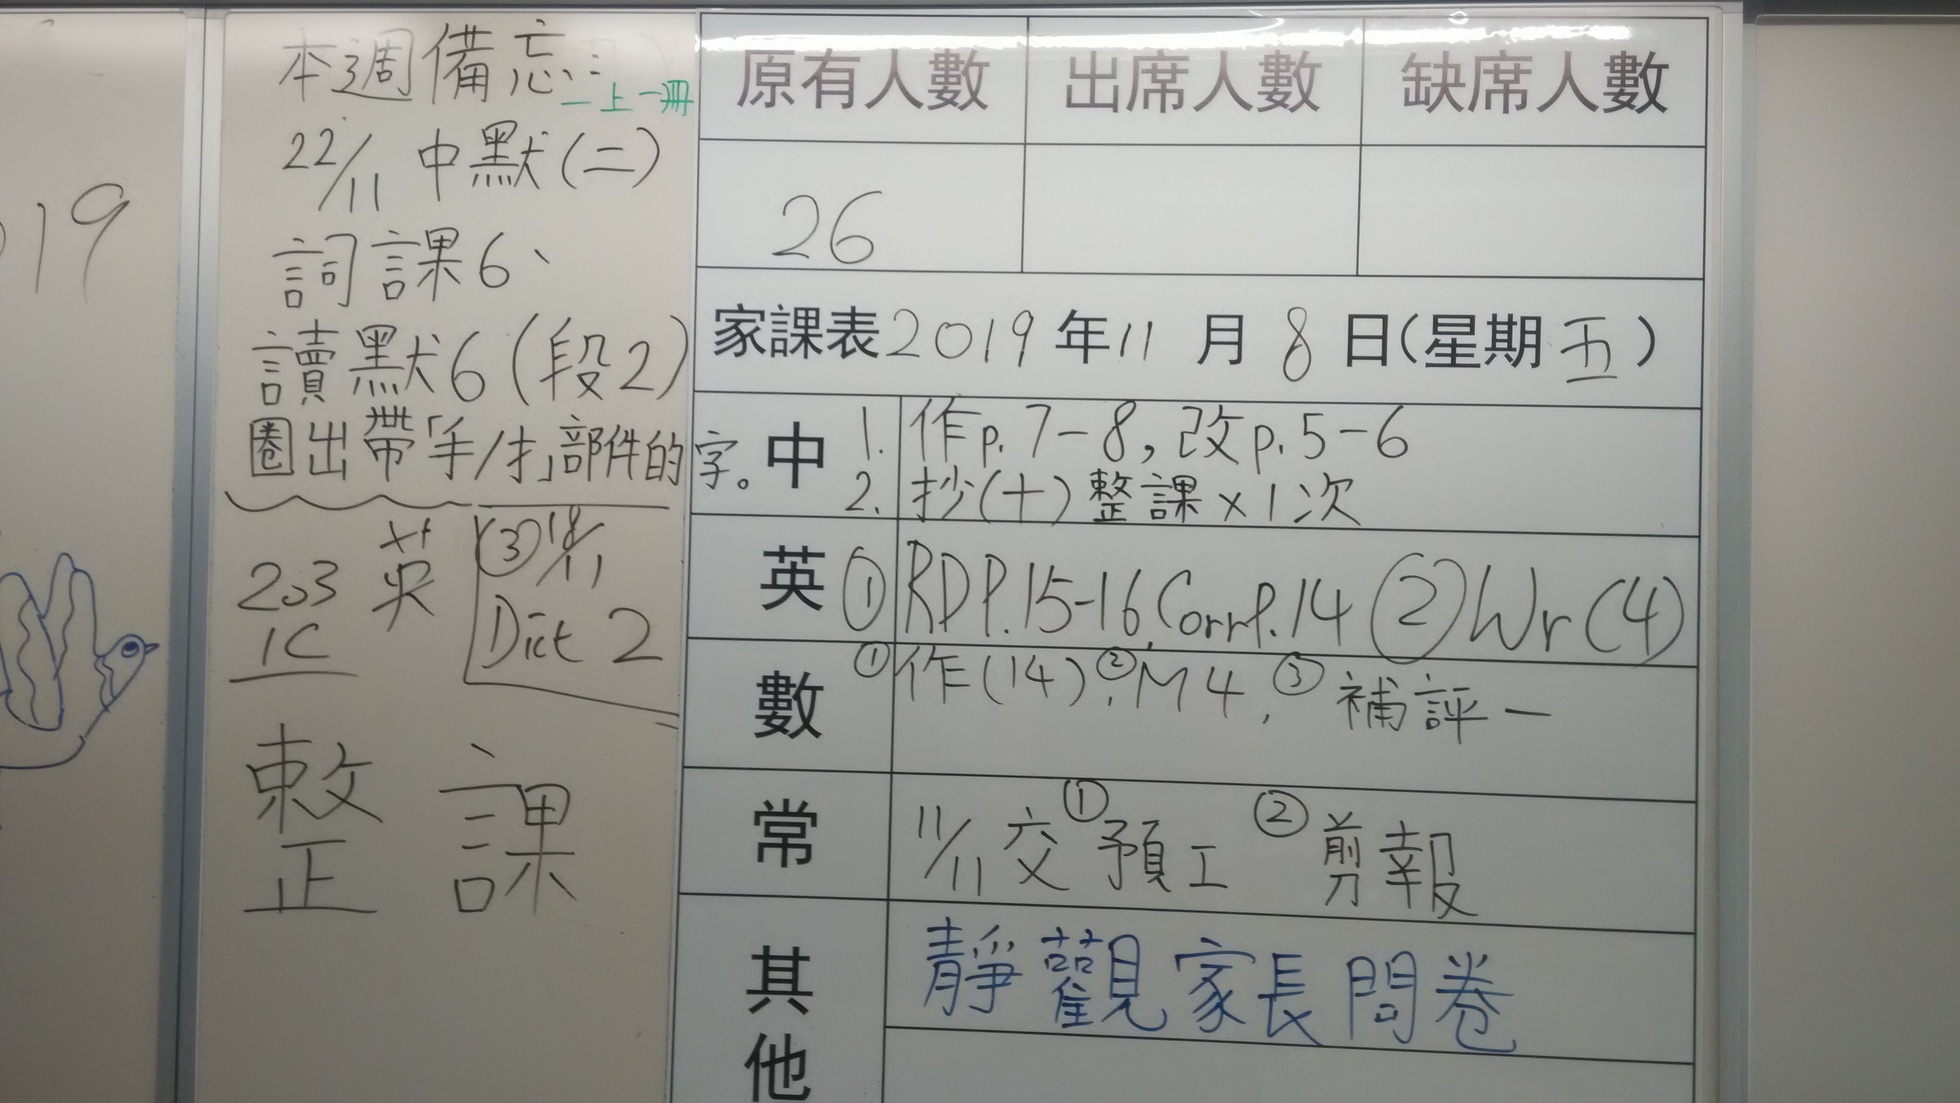 19
本週備忘：
一上一冊
22/11 中默(二)
詞課6、
讀默6(段2)
圈出帶「手/扌」部件的字。
203 英
1C
(3) 18/11
Dict 2
整 課
原有人數 出席人數 缺席人數
26
家課表2019年11月8日(星期五)
中 1. 作p.7-8,改p.5-6
2. 抄(十)整課×1次
英 ① RDP.15-16,CorrP.14 ②Wr(4)
數 ①作(14),②M4, ③補評一
常 11/11交①預工 ②剪報
其他 靜觀家長問卷